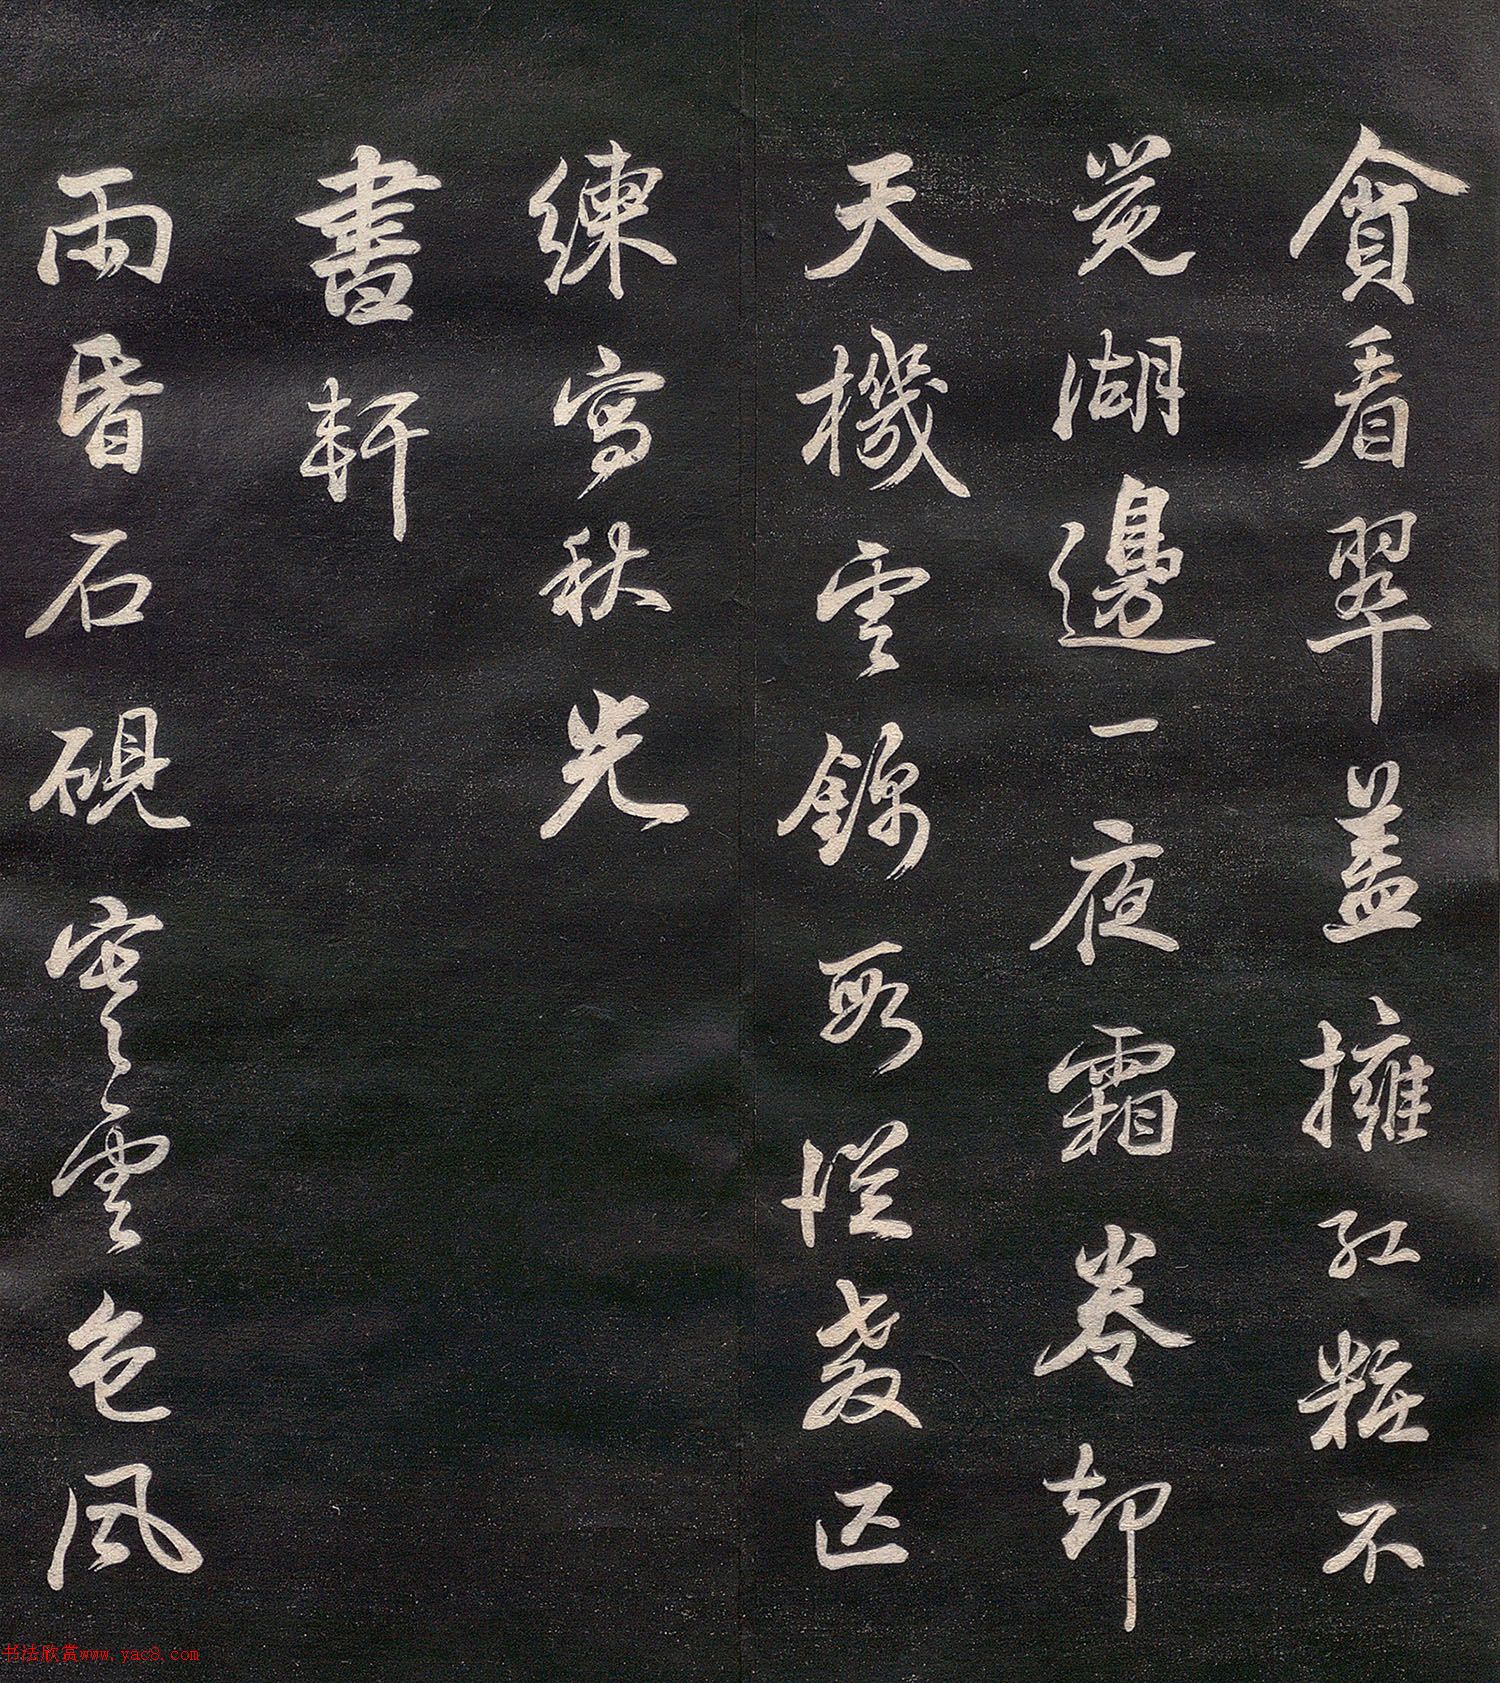 貪看翠蓋擁紅粧不
覚湖邊一夜霜卷却
天機雲錦段從教匹
練寫秋光
書軒
雨昏石硯寒雲色風
书法欣赏www.yac8.com